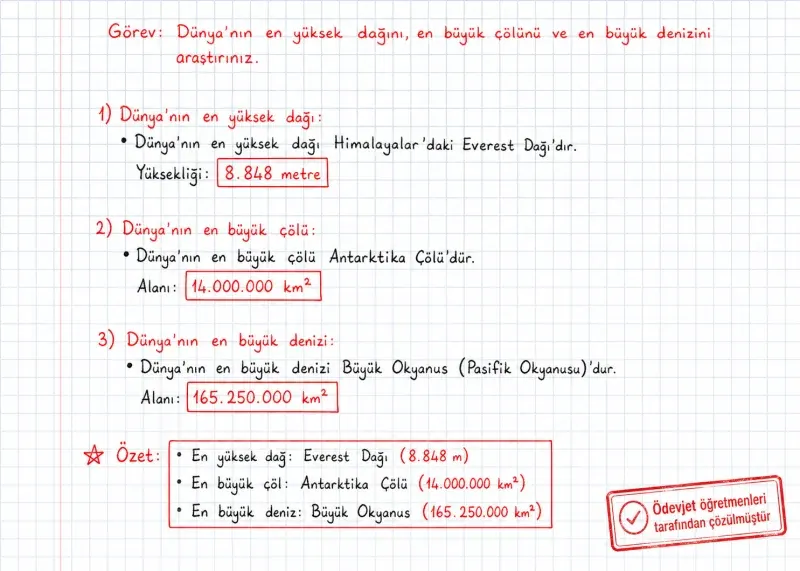 Görev: Dünya'nın en yüksek dağını, en büyük çölünü ve en büyük denizini
araştırınız.
1) Dünya'nın en yüksek dağı:
• Dünya'nın en yüksek dağı Himalayalar'daki Everest Dağı'dır.
Yüksekliği: 8.848 metre
2) Dünya'nın en büyük çölü:
• Dünya'nın en büyük çölü Antarktika Çölü'dür.
Alanı: 14.000.000 km²
3) Dünya'nın en büyük denizi:
• Dünya'nın en büyük denizi Büyük Okyanus (Pasifik Okyanusu)'dur.
Alanı: 165.250.000 km²
Özet:
• En yüksek dağ: Everest Dağı (8.848 m)
• En büyük çöl: Antarktika Çölü (14.000.000 km²)
• En büyük deniz: Büyük Okyanus (165.250.000 km²)
Ödevjet öğretmenleri
tarafından çözülmüştür